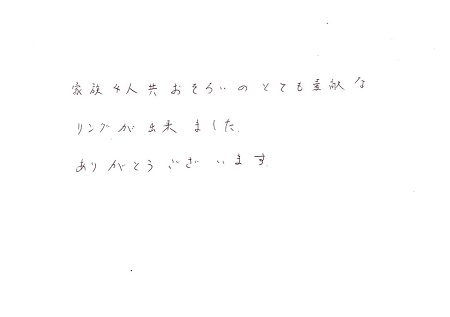 家族4人共おそろいのとても素敵な
リングが出来ました。
ありがとうございます。